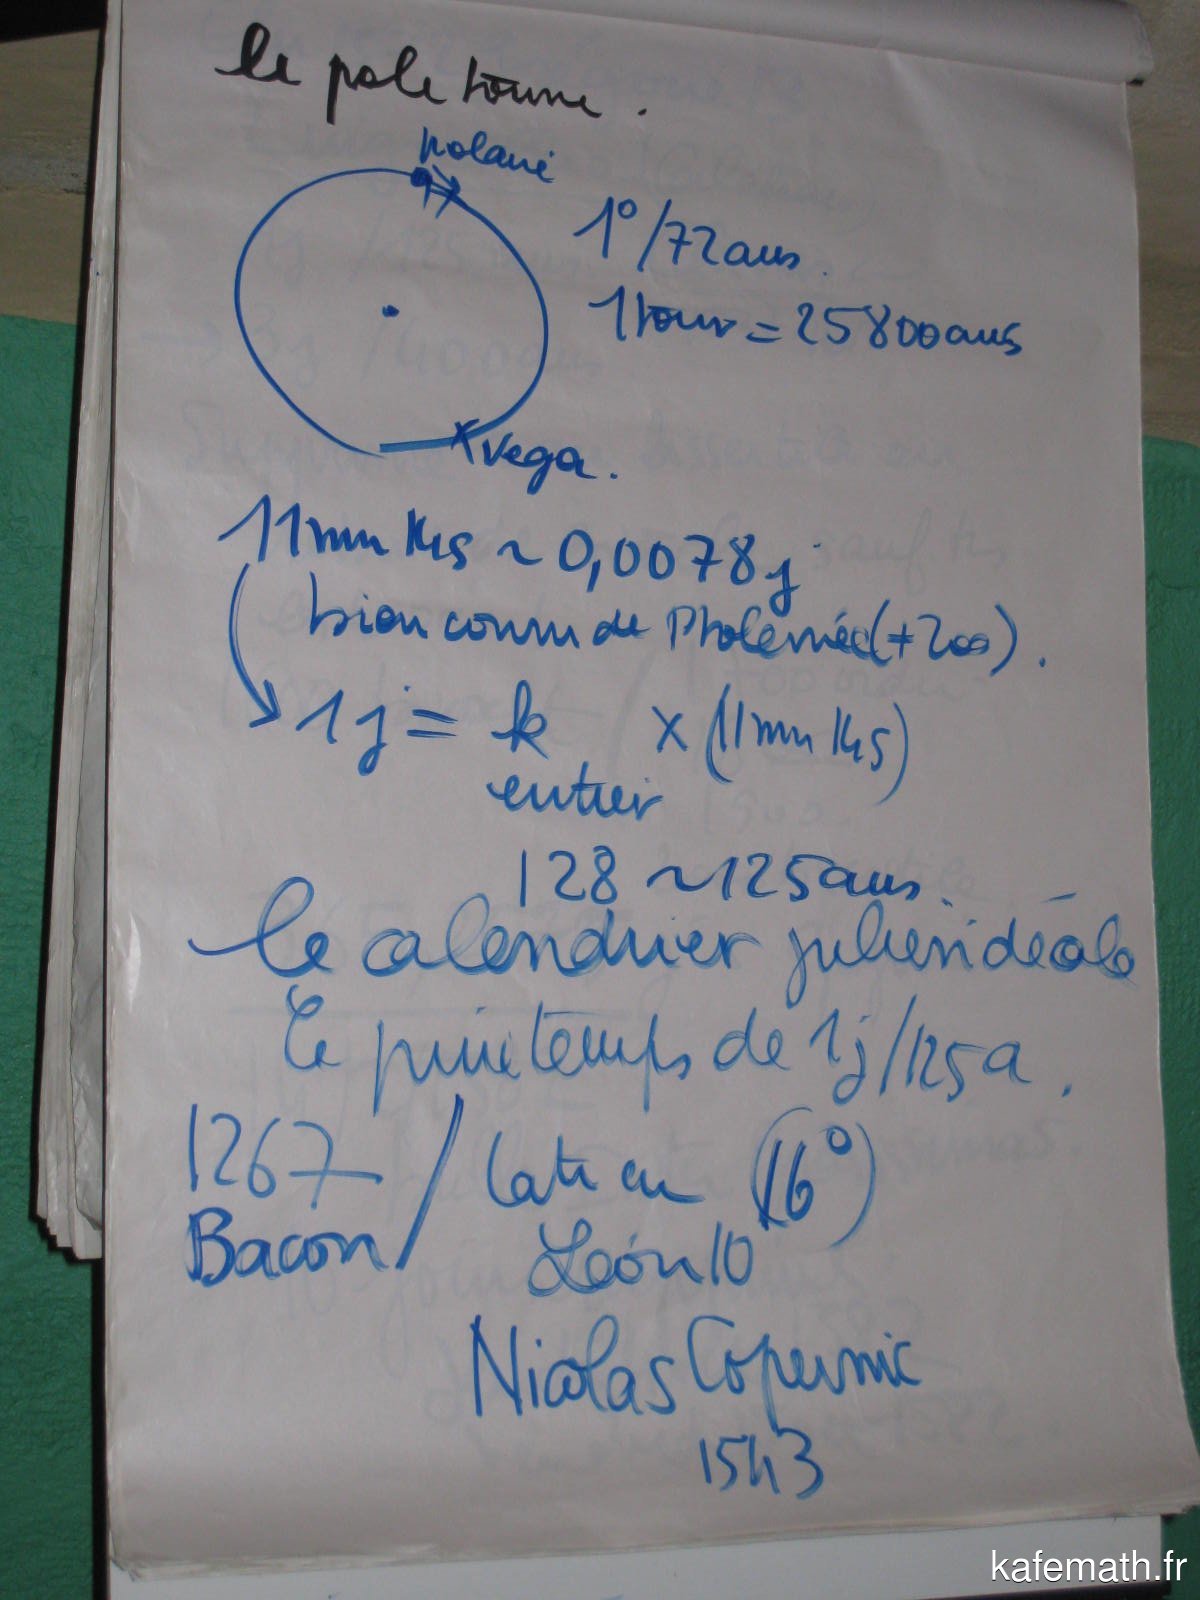 le pole tourne.
polaire
1°/72ans.
1 tour = 25800ans
vega.
11mn 14s ~ 0,0078j
bien connu de Ptolemée(+200).
1j = k x (11mn 14s)
entier
128 ~ 125ans
le calendrier julien idéale
le printemps de 1j/125a.
1267 / Latran (16°)
Bacon
Léon 10
Nicolas Copernic
1543
kafemath.fr